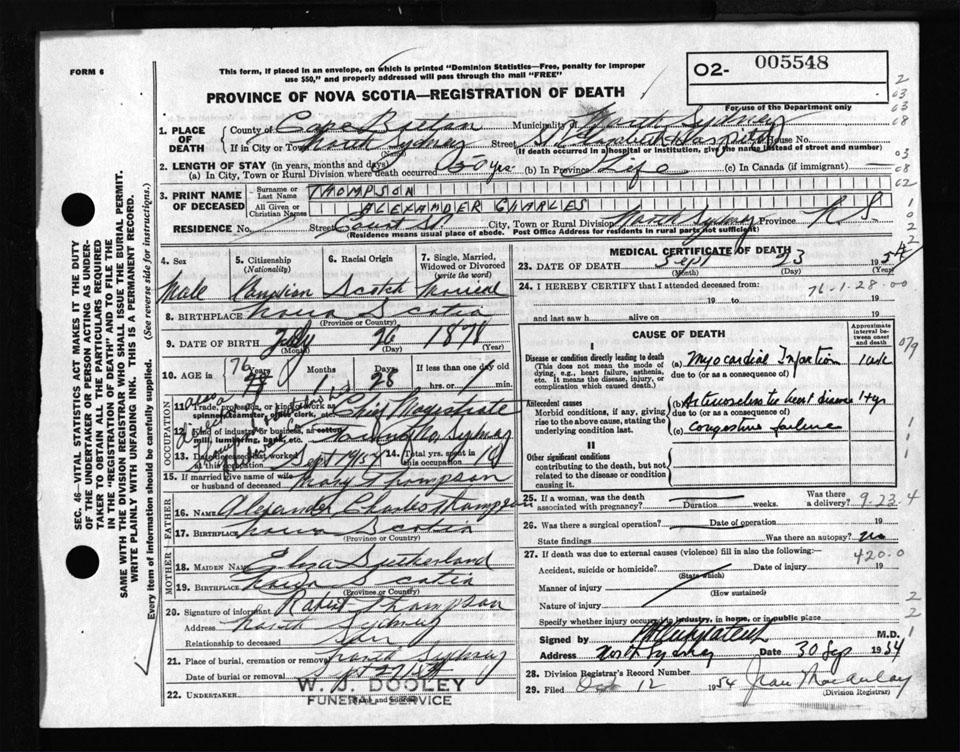 FORM 6
This form, if placed in an envelope, on which is printed "Dominion Statistics—Free, penalty for improper
use $50," and properly addressed will pass through the mail "FREE"
O2- 005548
PROVINCE OF NOVA SCOTIA—REGISTRATION OF DEATH
For use of the Department only
1. PLACE OF DEATH
County of Cape Breton Municipality of North Sydney
If in City or Town North Sydney Street Hospital House No.
(If death occurred in a hospital or institution, give the name instead of street and number)
2. LENGTH OF STAY (in years, months and days)
(a) In City, Town or Rural Division where death occurred 50 yrs (b) In Province Life (c) In Canada (if immigrant)
3. PRINT NAME OF DECEASED
Surname or Last Name THOMPSON
All Given or Christian Names ALEXANDER CHARLES
RESIDENCE No. Street Court St City, Town or Rural Division North Sydney Province N. S.
(Residence means usual place of abode. Post Office Address for residents in rural parts not sufficient)
4. Sex Male
5. Citizenship (Nationality) Canadian
6. Racial Origin Scotch
7. Single, Married, Widowed or Divorced (write the word) Married
8. BIRTHPLACE Nova Scotia
(Province or Country)
9. DATE OF BIRTH July 26 1878
(Month) (Day) (Year)
10. AGE in 76 Years Months 1 Days 28 If less than one day old
hrs. or min.
OCCUPATION
11. Trade, profession, or kind of work as spinner, teamster, office clerk, etc. Chief Magistrate
12. Kind of industry or business, as cotton mill, lumbering, bank, etc. Town of No. Sydney
13. Date deceased last worked at this occupation Sept 1954 14. Total yrs. spent in this occupation
15. If married give name of wife or husband of deceased Mary Thompson
FATHER
16. Name Alexander Charles Thompson
17. Birthplace Nova Scotia
(Province or Country)
MOTHER
18. MAIDEN NAME Eliza Sutherland
19. BIRTHPLACE Nova Scotia
(Province or Country)
20. Signature of informant Robert Thompson
Address North Sydney
Relationship to deceased Son
21. Place of burial, cremation or removal North Sydney
Date of burial or removal Sept 27/54
22. UNDERTAKER
W. J. DOOLEY
FUNERAL SERVICE
MEDICAL CERTIFICATE OF DEATH
23. DATE OF DEATH Sept 23 1954
(Month) (Day) (Year)
24. I HEREBY CERTIFY that I attended deceased from:
76-1-28-00
19 to 19
and last saw h alive on 19
CAUSE OF DEATH
Approximate interval between onset and death
I
Disease or condition directly leading to death
(This does not mean the mode of dying, e.g., heart failure, asthenia, etc. It means the disease, injury, or complication which caused death.)
(a) Myocardial Infarction 1 wk
due to (or as a consequence of)
Antecedent causes
Morbid conditions, if any, giving rise to the above cause, stating the underlying condition last.
(b) Arteriosclerotic heart disease 1+ yr
due to (or as a consequence of)
(c) Congestive failure
II
Other significant conditions
contributing to the death, but not related to the disease or condition causing it.
25. If a woman, was the death associated with pregnancy? Duration weeks. Was there a delivery?
9-23-4
26. Was there a surgical operation? Date of operation 19
State findings Was there an autopsy? no
27. If death was due to external causes (violence) fill in also the following:—
420.0
Accident, suicide or homicide? Date of injury 19
(State which)
Manner of injury
(How sustained)
Nature of injury
Specify whether injury occurred in industry, in home, or in public place
Signed by M.D.
Address North Sydney Date 30 Sep 1954
28. Division Registrar's Record Number
29. Filed Oct 12 1954 Jean Macaulay
(Division Registrar)
SEC. 46—VITAL STATISTICS ACT MAKES IT THE DUTY
OF THE UNDERTAKER OR PERSON ACTING AS UNDER-
TAKER TO OBTAIN ALL THE PARTICULARS REQUIRED
IN THE "REGISTRATION OF DEATH" AND TO FILE THE
SAME WITH THE DIVISION REGISTRAR WHO SHALL ISSUE THE BURIAL PERMIT.
WRITE PLAINLY WITH UNFADING INK. THIS IS A PERMANENT RECORD.
Every item of information should be carefully supplied. (See reverse side for instructions.)